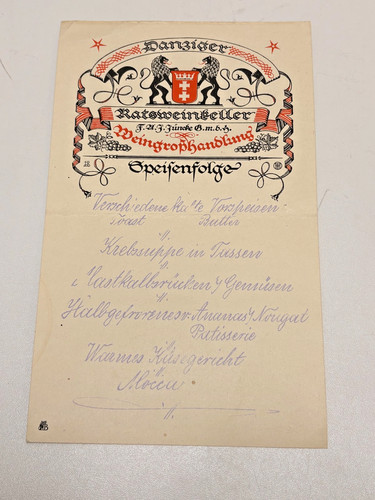 Danziger
Ratsweinkeller
F. A. J. Jüncke G. m. b. H.
Weingroßhandlung
Speisenfolge
Verschiedene kalte Vorspeisen:
Toast Butter
Krebssuppe in Tassen
Mastkalbsrücken m/ Gemüsen
Halbgefrorenes v. Ananas m/ Nougat
Patisserie
Warmes Käsegericht
Mocca